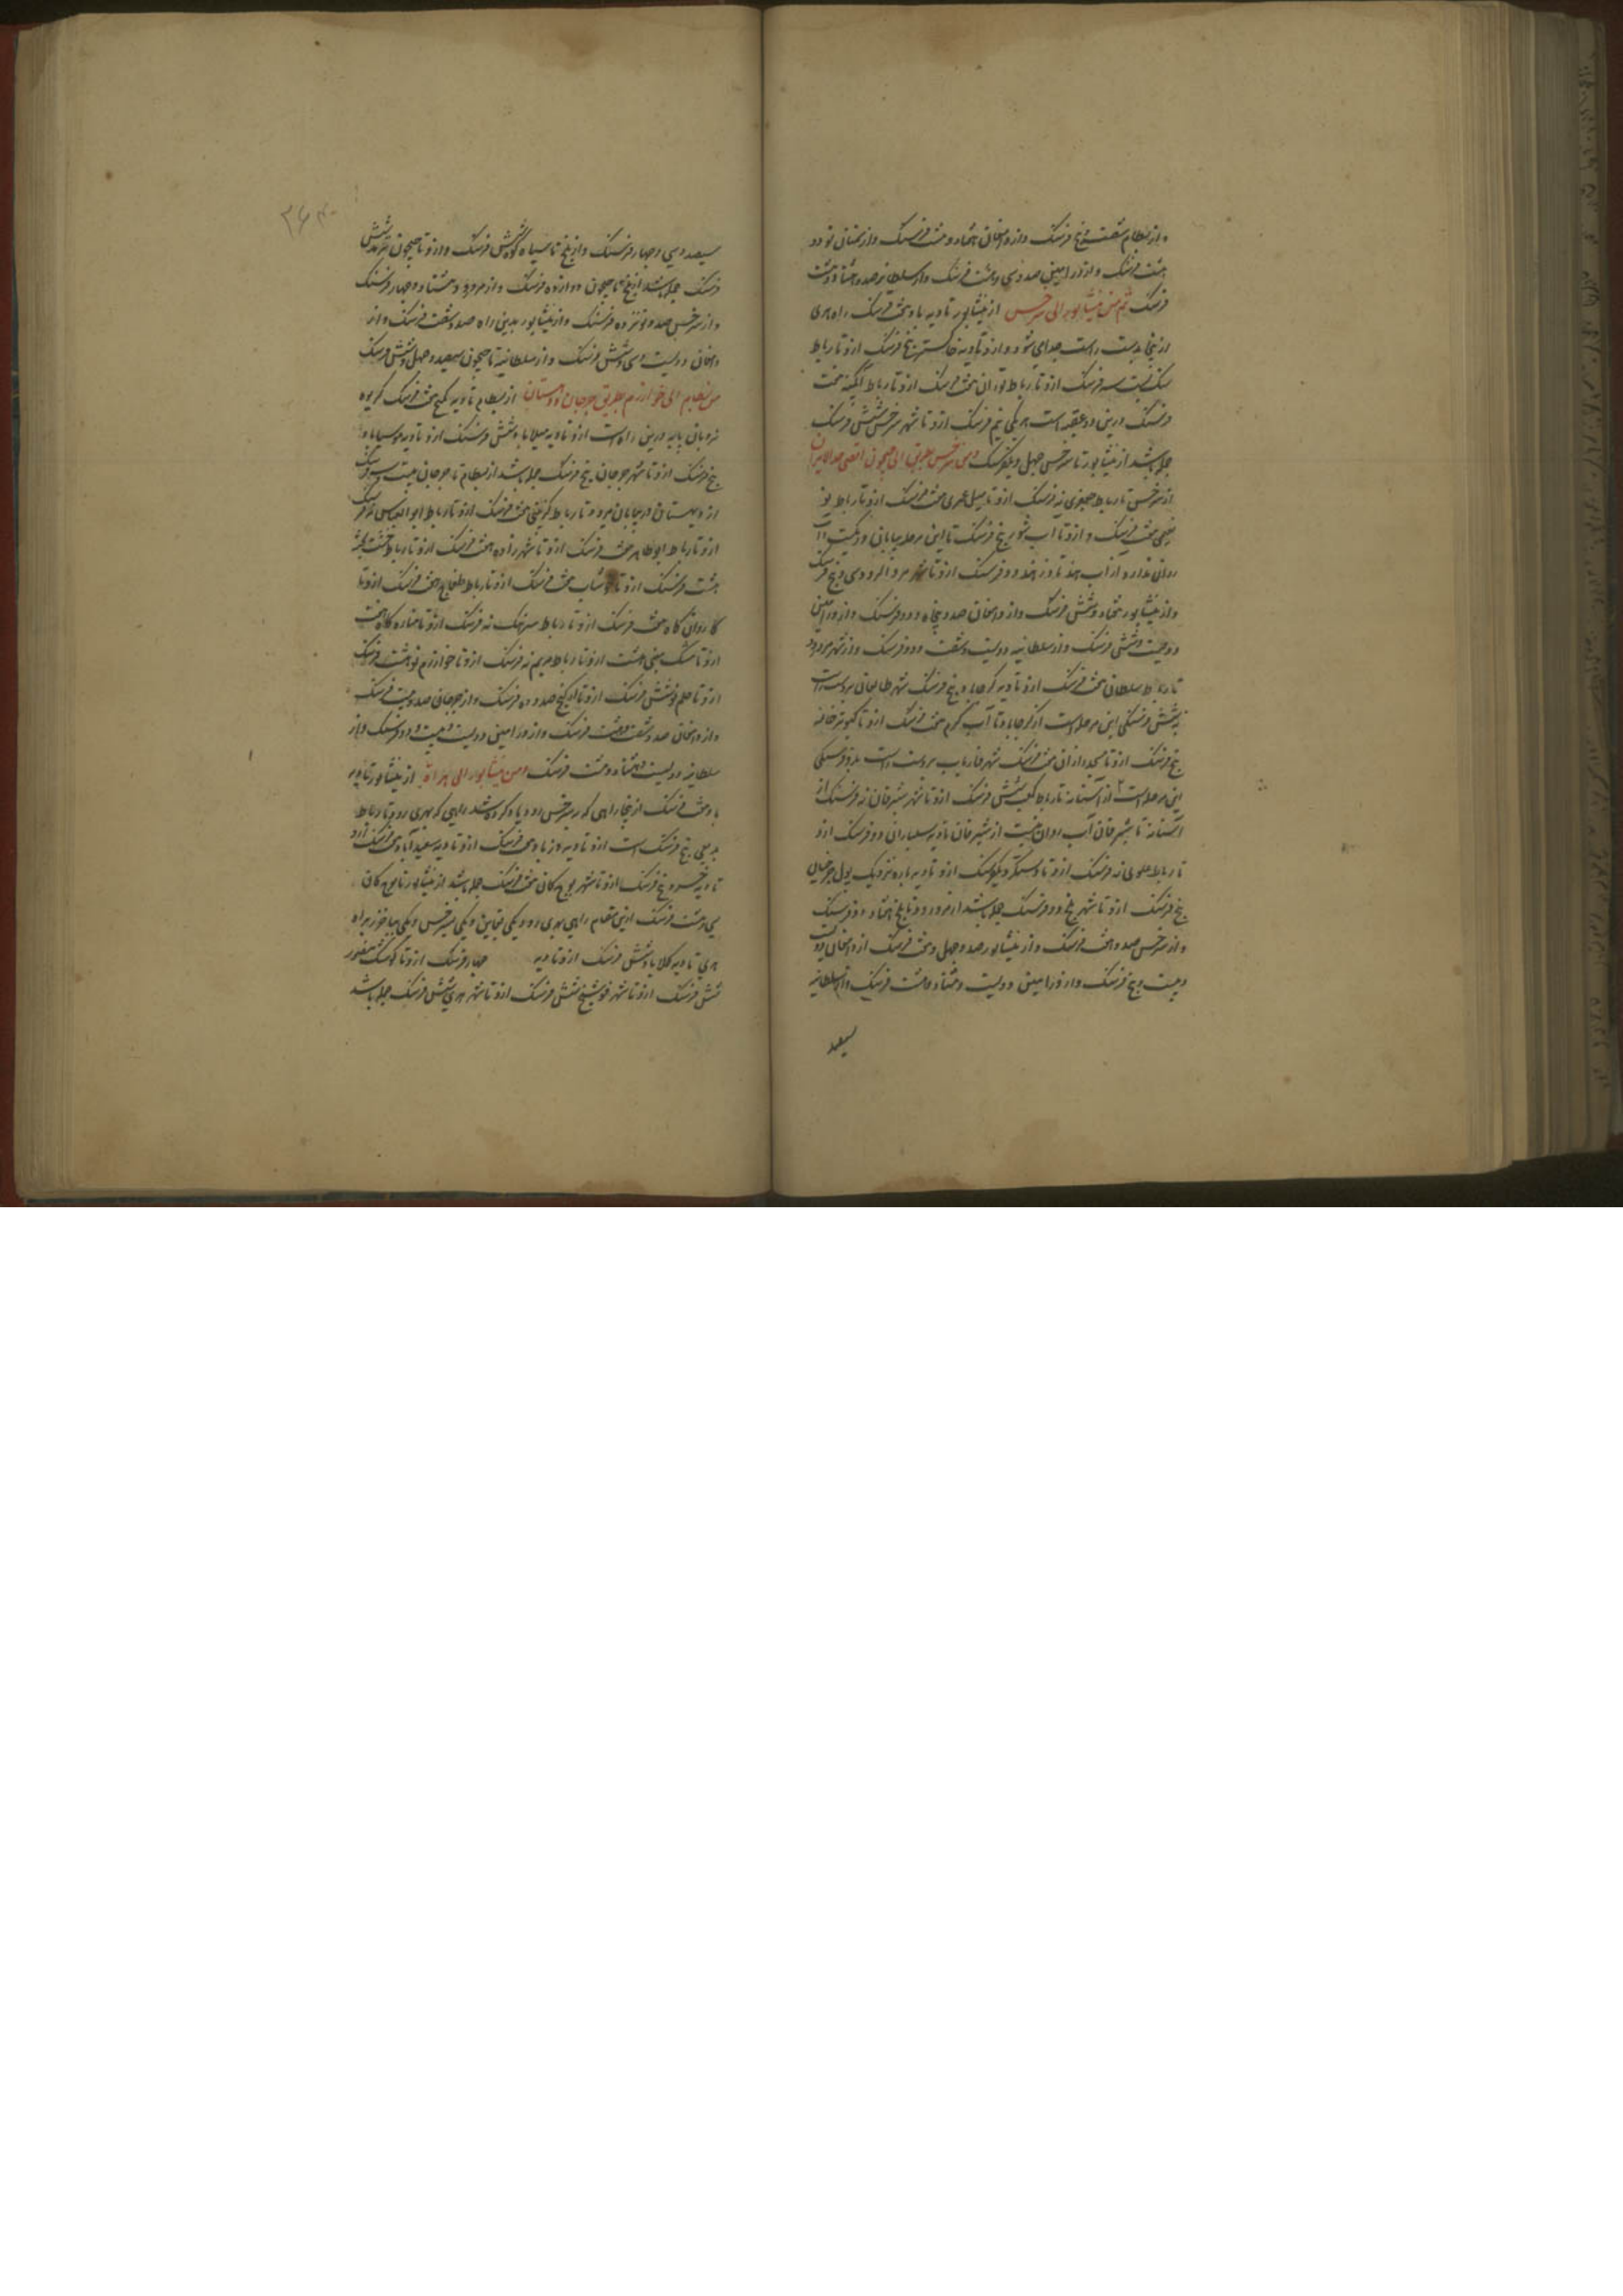 و از بسطام شصت و پنج فرسنگ و از دامغان هفتاد و هشت فرسنگ و از سمنان نود و
هشت فرسنگ و از ورامین صد و سی و هشت فرسنگ و از سلطانیه صد و هشتاد و هشت
فرسنگ ثم من نیشابور الی سرخس از نیشابور تا دیه باد هفت فرسنگ راه هری
از نیجا بدست راست جدا می شود و از و تا دیه خاکستر پنج فرسنگ از و تا رباط
سنک بست سه فرسنگ از و تا رباط توران هفت فرسنگ از و تا رباط آبگینه هفت
فرسنگ درین دو عقبه است هر یکی نیم فرسنگ از و تا شهر سرخس شش فرسنگ
جمله باشد از نیشابور تا سرخس چهل و یک فرسنگ و من سرخس الی جیحون اقصی حد ایران
از سرخس تا رباط جعفری نه فرسنگ از و تا میل عمری هفت فرسنگ از و تا رباط بو
نعیمی هفت فرسنگ و از و تا آب شور پنج فرسنگ تا این مرحله بیابان و ریکست آب
روان ندارد از آب
و از نیشابور هفتاد و شش فرسنگ و از دامغان صد و پنجاه و دو فرسنگ و از ورامین
دویست و شش فرسنگ و از سلطانیه دویست و شصت و دو فرسنگ و از شهر مرورود
تا رباط سلطان هفت فرسنگ از و تا دیه کرجاباد پنج فرسنگ شهر طالقان بر دست راست
به شش فرسنگی این مرحله است از کرجاباد تا آب گرم هفت فرسنگ از و تا کبوترخانه
پنج فرسنگ از و تا مسجد رازان هفت فرسنگ شهر فاریاب بر دست راست بدو فرسنگی
این مرحله است از آستانه تا رباط کعب شش فرسنگ از و تا شهر شبرقان نه فرسنگ از
آستانه تا شبرقان آب روان نیست از شبرقان تا دیه سلیاران دو فرسنگ از و
تا رباط علوی نه فرسنگ از و تا دستگرد یک فرسنگ از و تا دیه باره نزدیک پول جرخیان
پنج فرسنگ از و تا شهر بلخ دو فرسنگ جمله باشد از مرورود تا بلخ هفتاد دو فرسنگ
و از سرخس صد و هفت فرسنگ و از نیشابور صد و چهل و هشت فرسنگ از دامغان دویست
و بیست و پنج فرسنگ و از ورامین دویست و هفتاد و هشت فرسنگ و از سلطانیه
سیصد
سیصد و سی و چهار فرسنگ و از بلخ تا سیاه کوه شش فرسنگ و از و تا جیحون ترمد شش
فرسنگ جمله باشد از بلخ تا جیحون دوازده فرسنگ و از مرورود هشتاد و چهار فرسنگ
و از سرخس صد و نوزده فرسنگ و از نیشابور بدین راه صد و شصت فرسنگ و از
دامغان دویست و سی و شش فرسنگ و از سلطانیه تا جیحون سیصد و چهل و شش فرسنگ
من بسطام الی خوارزم بطریق جرجان و دهستان از بسطام تا دیه کیج هفت فرسنگ گریوه
نردبان پایه درین راه است از و تا دیه میلاباد شش فرسنگ از و تا دیه موسیاباد
پنج فرسنگ از و تا شهر جرجان پنج فرسنگ جمله باشد از بسطام تا جرجان بیست و سه فرسنگ
از دهستان در بیابان میرود تا رباط کربینی هفت فرسنگ از و تا رباط ابو العباس نه فرسنگ
از و تا رباط ابو طاهر هفت فرسنگ از و تا شهر فراوه هفت فرسنگ از و تا رباط خشت پخته
هشت فرسنگ از و تا خوشاب هفت فرسنگ از و تا رباط طغماج هفت فرسنگ از و تا
کاروان گاه هفت فرسنگ از و تا رباط سرهنگ نه فرسنگ از و تا مناره گاه هفت
از و تا مشک مینی هشت از و تا رباط مریم نه فرسنگ از و تا خوارزم نو هشت فرسنگ
از و تا حلم شش فرسنگ از و تا اورکنج صد و ده فرسنگ و از جرجان صد و بیست فرسنگ
و از دامغان صد و شصت و هشت فرسنگ و از ورامین دویست و بیست و دو فرسنگ و از
سلطانیه دویست و هشتاد و هشت فرسنگ و من نیشابور الی هراة از نیشابور تا دیه
باد هفت فرسنگ از نیجا راهی که بسرخس رود یاد کرده شد راهی که بهری رود تا رباط
بدیعی پنج فرسنگ است از و تا دیه فرهاد هفت فرسنگ از و تا دیه سعیدآباد هفت فرسنگ از و
تا دیه خسرو پنج فرسنگ از و تا شهر بوجکان هفت فرسنگ جمله باشد از نیشابور تا بوجکان
سی و هشت فرسنگ ازین مقام راهی بهری رود و یکی بقاین و یکی بترشیز و یکی بباخرز براه
هری تا دیه کلاباد شش فرسنگ از و تا دیه چهار فرسنگ از و تا کوشک منصور
شش فرسنگ از و تا شهر فوشنج شش فرسنگ از و تا شهر هری شش فرسنگ جمله باشد